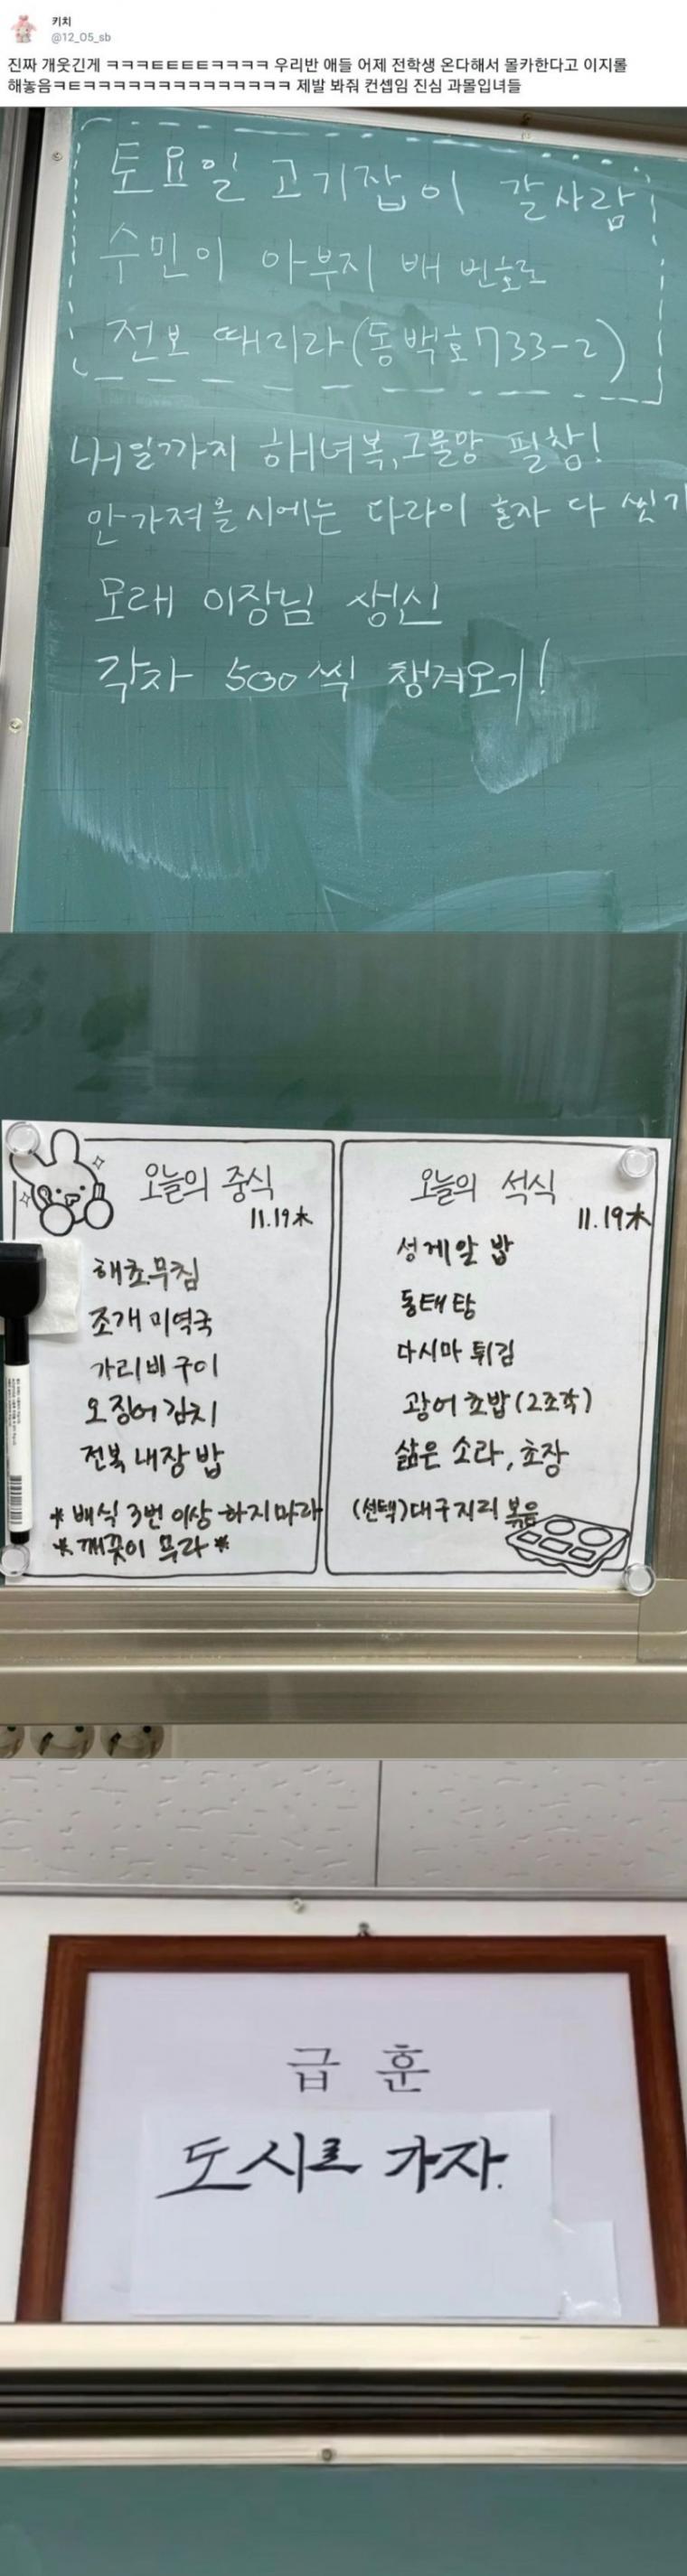 키치
@12_05_sb
진짜 개웃긴게 ㅋㅋㅋㅌㅌㅌㅌㅋㅋㅋㅋ 우리반 애들 어제 전학생 온다해서 몰카한다고 이지롤
해놓음ㅋㅌㅋㅋㅋㅋㅋㅋㅋㅋㅋㅋㅋㅋㅋㅋ 제발 봐줘 컨셉임 진심 과몰입녀들
토요일 고기잡이 갈사람
수민이 아부지 배 번호로
전보 때리라(동백호733-2)
내일까지 해녀복,그물망 필참!
안가져올시에는 다라이 혼자 다 씻기
모래 이장님 생신
각자 500씩 챙겨오기!
오늘의 중식
11.19木
해초무침
조개 미역국
가리비 구이
오징어 김치
전복 내장 밥
* 배식 3번 이상 하지마라
* 깨끗이 무라 *
오늘의 석식
11.19木
성게알 밥
동태탕
다시마 튀김
광어 초밥(2조각)
삶은 소라, 초장
(선택)대구지리 볶음
급 훈
도시로 가자.